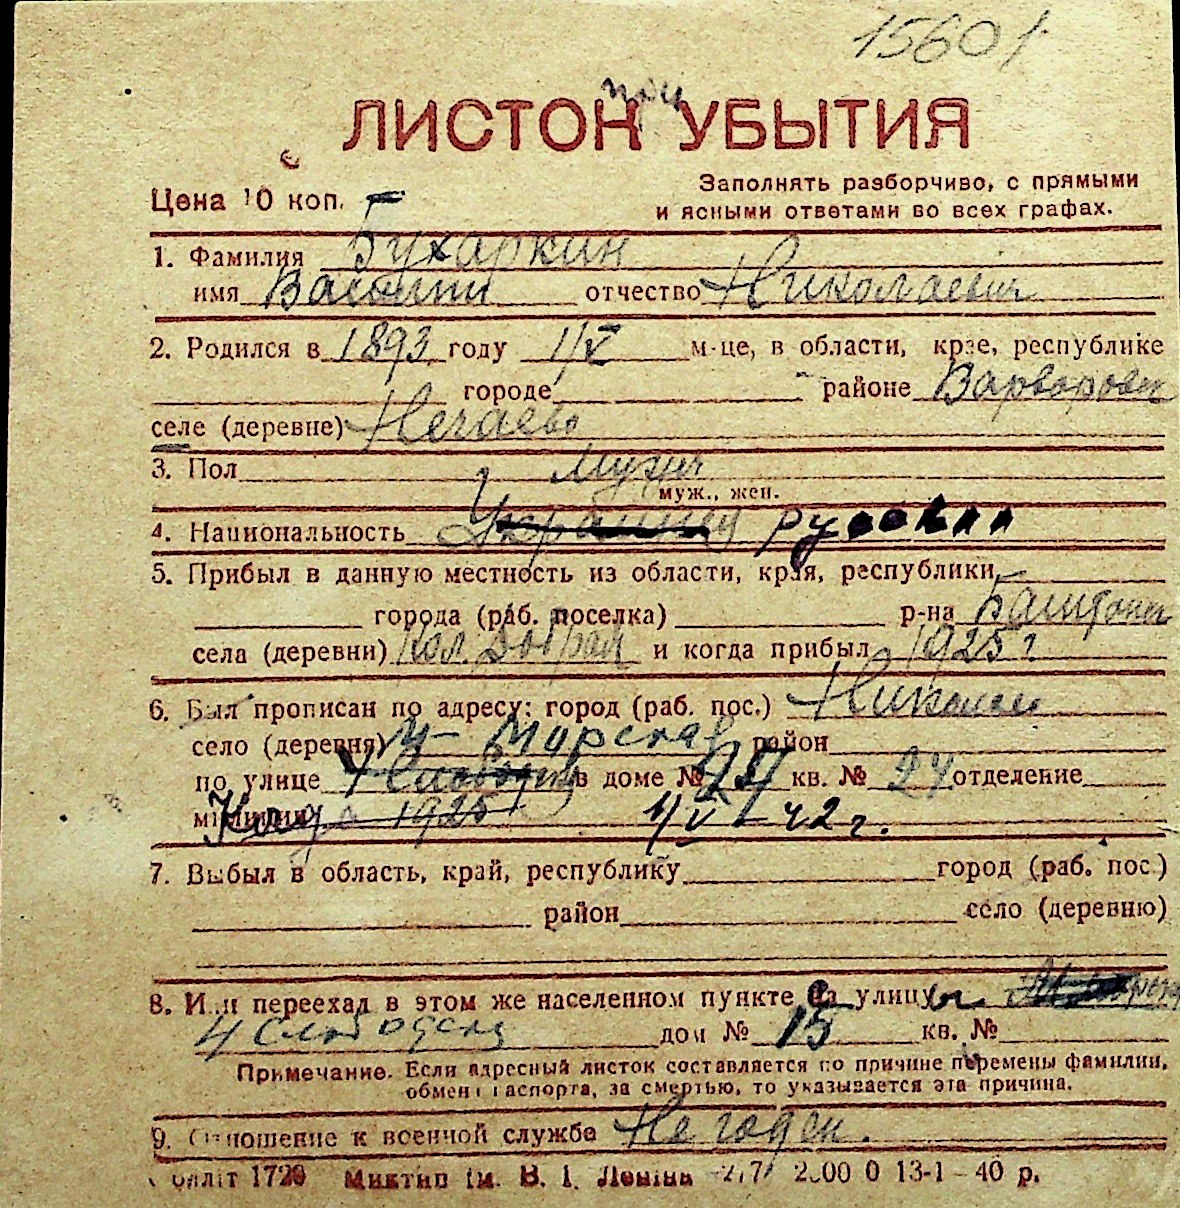 15601
ЛИСТОК УБЫТИЯ
Цена 10 коп.
Заполнять разборчиво, с прямыми
и ясными ответами во всех графах.
1. Фамилия Бухаркин
имя Василий отчество Николаевич
2. Родился в 1893 году 1/V м-це, в области, крае, республике
городе районе Варваровск
селе (деревне) Нечаево
3. Пол мужч
муж., жен.
4. Национальность Украинец русский
5. Прибыл в данную местность из области, края, республики
города (раб. поселка) р-на Баштанск
села (деревни) Кол. Добрая и когда прибыл 1925 г.
6. Был прописан по адресу: город (раб. пос.) Николаев
село (деревня) Морская район
по улице в доме № кв. № 24 отделение
милиции 1925 1/V - 42 г.
7. Выбыл в область, край, республику город (раб. пос.)
район село (деревню)
8. Или переехал в этом же населенном пункте на улицу
4 Слободская дом № 15 кв. №
Примечание. Если адресный листок составляется по причине перемены фамилии,
обмена паспорта, за смертью, то указывается эта причина.
9. Отношение к военной службе Не годен.
1720 им. В. І. Леніна 13-1-40 р.